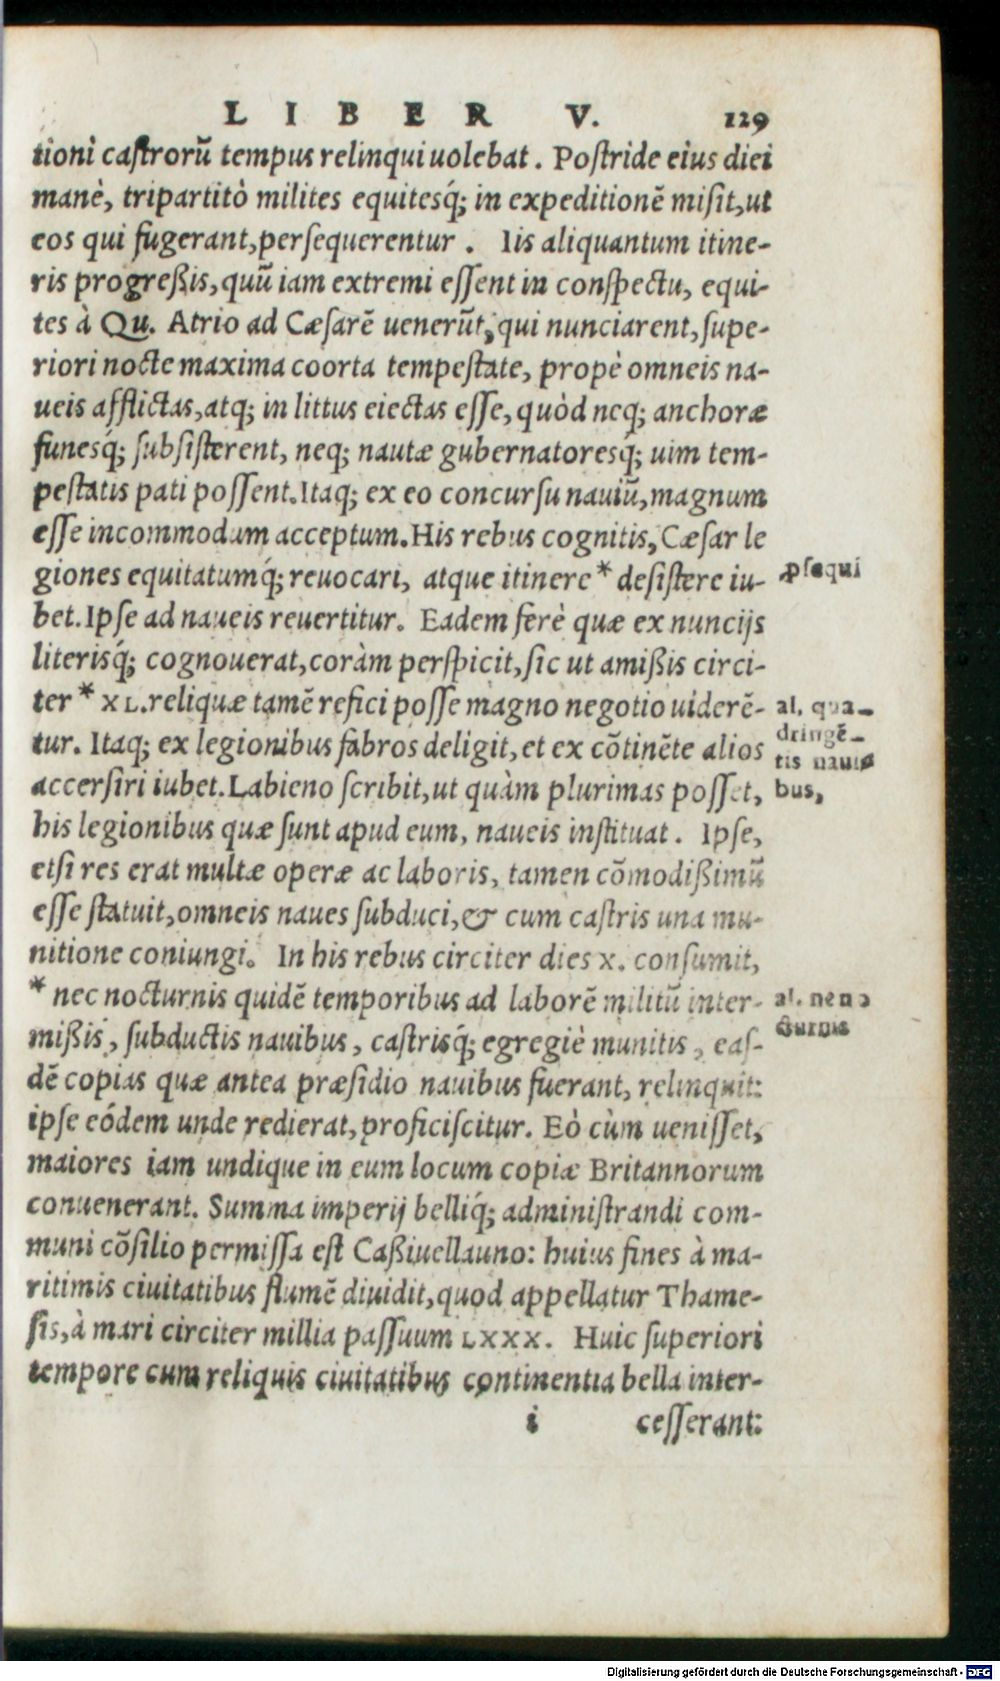 LIBER V. 129
tioni castrorũ tempus relinqui uolebat. Postride eius diei
manè, tripartitò milites equitesq́; in expeditionẽ misit, ut
eos qui fugerant, persequerentur. Iis aliquantum itine-
ris progreßis, quũ iam extremi essent in conspectu, equi-
tes à Qu. Atrio ad Cæsarẽ uenerũt, qui nunciarent, supe-
riori nocte maxima coorta tempestate, propè omneis na-
ueis afflictas, atq; in littus eiectas esse, quòd neq; anchoræ
funesq́; subsisterent, neq; nautæ gubernatoresq́; uim tem-
pestatis pati possent. Itaq; ex eo concursu nauiũ, magnum
esse incommodum acceptum. His rebus cognitis, Cæsar le
giones equitatumq́; reuocari, atque itinere * desistere iu-
ꝑsequi
bet. Ipse ad naueis reuertitur. Eadem ferè quæ ex nuncijs
literisq́; cognouerat, coràm perspicit, sic ut amißis circi-
ter * XL. reliquæ tamẽ refici posse magno negotio uiderẽ-
al. qua-
tur. Itaq; ex legionibus fabros deligit, et ex cõtinẽte alios
dringẽ-
tis naui
accersiri iubet. Labieno scribit, ut quàm plurimas posset,
bus,
his legionibus quæ sunt apud eum, naueis instituat. Ipse,
etsi res erat multæ operæ ac laboris, tamen cõmodißimũ
esse statuit, omneis naues subduci, & cum castris una mu-
nitione coniungi. In his rebus circiter dies x. consumit,
* nec nocturnis quidẽ temporibus ad laborẽ militũ inter-
al. ne no
cturnis
mißis, subductis nauibus, castrisq́; egregiè munitis, eas-
dẽ copias quæ antea præsidio nauibus fuerant, relinquit:
ipse eódem unde redierat, proficiscitur. Eò cùm uenisset,
maiores iam undique in eum locum copiæ Britannorum
conuenerant. Summa imperij belliq́; administrandi com-
muni cõsilio permissa est Caßiuellauno: huius fines à ma-
ritimis ciuitatibus flumẽ diuidit, quod appellatur Thame-
sis, à mari circiter millia passuum LXXX. Huic superiori
tempore cum reliquis ciuitatibus continentia bella inter-
i cesserant:
Digitalisierung gefördert durch die Deutsche Forschungsgemeinschaft - DFG